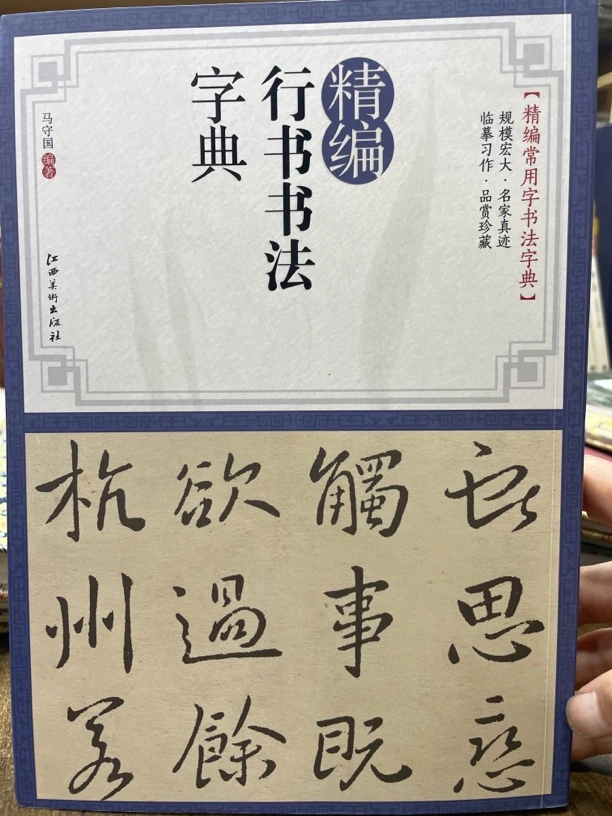 【精编常用字书法字典】
规模宏大·名家真迹
临摹习作·品赏珍藏
精编
行书书法
字典
马守国 编著
江西美术出版社
思恋
觸事既
欲過餘
杭州若